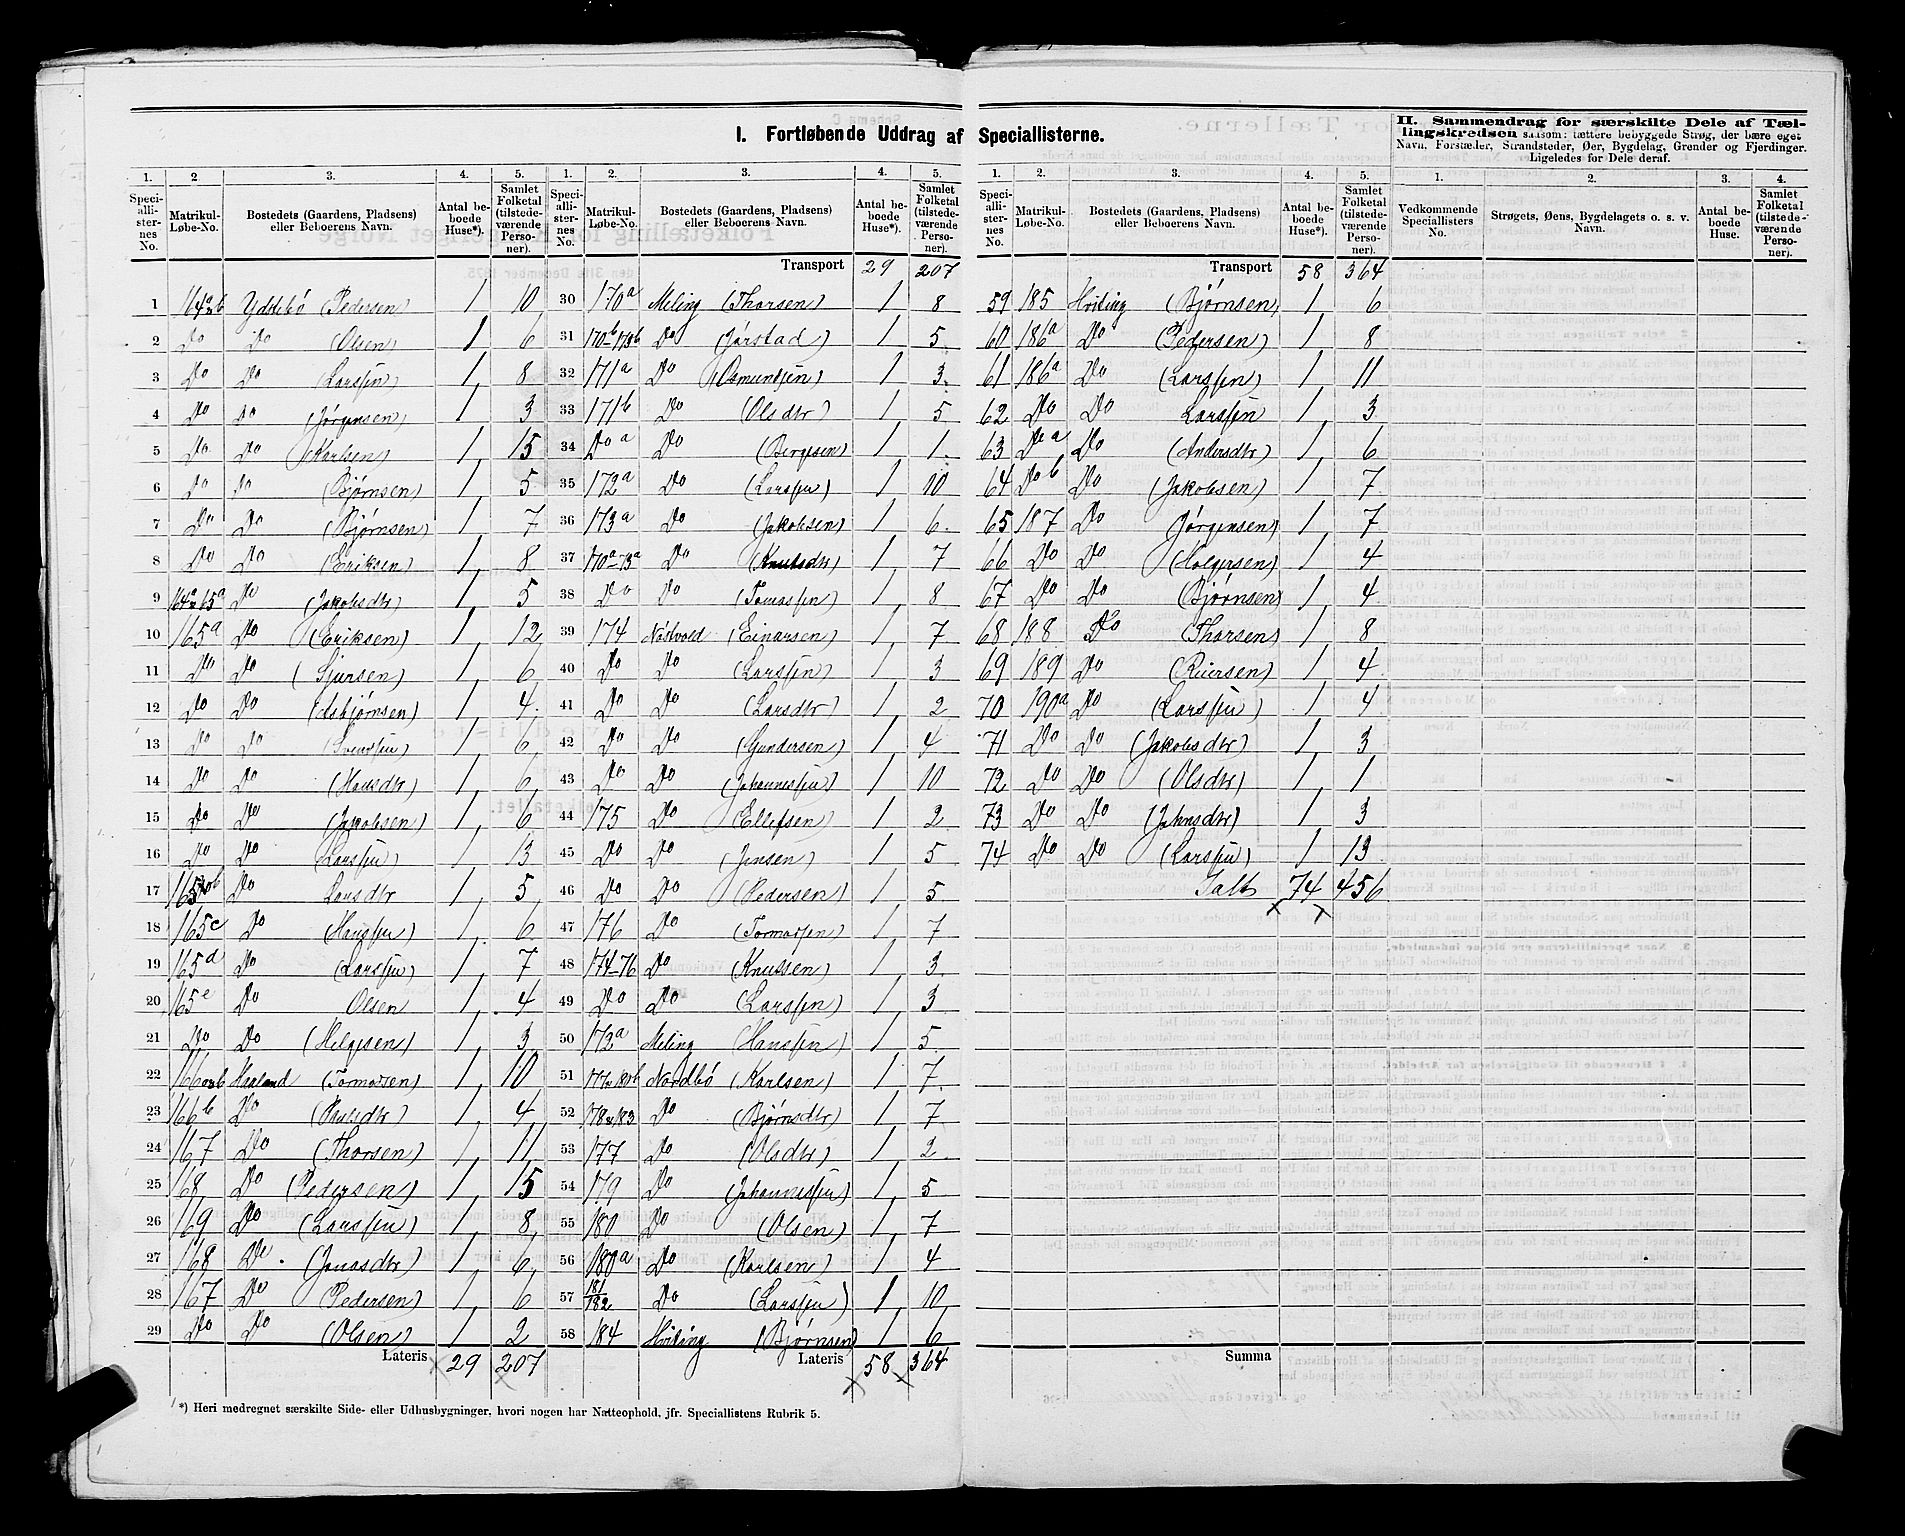 I. Fortløbende Uddrag af Speciallisterne.
II. Sammendrag for særskilte Dele af Tællingskredsen saasom: tættere bebyggede Strøg, der bære eget Navn, Forstæder, Strandsteder, Øer, Bygdelag, Grender og Fjerdinger. Ligeledes for Dele deraf.
1. 2 3. 4. 5.
Speciallisternes No. Matrikul-Løbe-No. Bostedets (Gaardens, Pladsens) eller Beboerens Navn. Antal beboede Huse*). Samlet Folketal (tilstedeværende Personer).
1 164a&b Ydstebö (Pedersen) 1 10
2 Do Do (Olsen) 1 6
3 Do Do (Larssen) 1, 8
4 Do Do (Jørgensen) 1 3
5 Do Do (Karlsen) 1, 15
6 Do Do (Bjørnsen) 1, 5
7 Do Do (Bjørnsen) 1, 7
8 Do Do (Eriksen) 1, 8
9 164a 65a Do (Jakobsdtr) 1, 5
10 165a Do (Eriksen) 1, 12
11 Do Do (Gjursen) 1, 6
12 Do Do (Asbjørnsen) 1, 4
13 Do Do (Svendsen) 1, 6
14 Do Do (Hansdtr) 1, 6
15 Do Do (Jakobsen) 1, 6
16 Do Do (Larssen) 1, 13
17 165 Do Larsdtr 1, 5
18 165c Do (Hanssen) 1, 6
19 165d Do (Larssen) 1, 7
20 165e Do Olsen 1, 4
21 Do Do (Helgesen) 1, 3
22 166a&b Haaland (Tormodsen) 1, 10
23 166b Do 1, 4
24 167 Do (Thorsen) 1, 11
25 168 Do (Pedersen) 1, 15
26 169 Do (Larssen) 1, 8
27 168 Do (Jonasdtr) 1, 6
28 167 Do (Pedersen) 1, 6
29 Do Do (Olsen) 1 2
Lateris 29 207
1. 2. 3. 4. 5.
Speciallisternes No. Matrikul-Løbe-No. Bostedets (Gaardens, Pladsens) eller Beboerens Navn. Antal beboede Huse*). Samlet Folketal (tilstedeværende Personer).
Transport 29 207
30 170a Meling (Thorsen) 1 8
31 170b-173b Do (Jørstad) 1 5
32 171a Do (Osmundsen) 1 3
33 171b Do (Olsdtr) 1 5
34 Do a Do (Bergesen) 1 1
35 172a Do (Larssen) 1 10
36 173a Do (Jakobsen) 1 6
37 170a-73a Do (Knutsdtr) 1 7
38 Do Do (Tomassen) 1 8
39 174 Nostvold (Einarsen) 1, 7
40 Do Do (Larssen) 1, 3
41 Do Do (Larsdtr) 1, 2
42 Do Do (Gundersen) 1, 4
43 Do Do (Johannessen) 1 10
44 175 Do (Ellefsen) 1 2
45 Do Do (Jensen) 1 5
46 Do Do (Pedersen) 1, 5
47 176 Do (Tormodsen) 1, 7
48 174-76 Do (Knutsen) 1, 3
49 Do Do (Larssen) 1, 3
50 172a Meling (Hanssen) 1 5
51 177a 180b Nordbö (Karlsen) 1, 7
52 178a183 Do (Bjørnsdtr) 1, 7
53 177 Do (Olsdtr) 1 2
54 179 Do (Johannessen) 1, 5
55 180 Do (Olsen) 1, 7
56 180a Do (Karlsen) 1 4
57 181/182 Do (Larssen) 1, 10,
58 184 Hviding (Bjørnsen) 1, 6
Lateris 58 364
*) Heri medregnet særskilte Side- eller Udhusbygninger, hvori nogen har Natteophold, jfr. Speciallistens Rubrik 5.
1. 2. 3. 4. 5.
Speciallisternes No. Matrikul-Løbe-No. Bostedets (Gaardens, Pladsens) eller Beboerens Navn. Antal beboede Huse*). Samlet Folketal (tilstedeværende Personer).
Transport 58 364
59 185 Hviding (Bjørnsen) 1 6
60 186a Do (Pedersen) 1 8
61 186a Do (Larssen) 1 11
62 Do Do Larssen 1, 3
63 Do a Do (Andersdtr) 1, 6
64 Do b Do (Jakobsen) 1, 7
65 187 Do (Jørgensen) 1, 7
66 Do Do (Holgersen) 1, 4
67 Do Do (Bjørnsen) 1, 4
68 188 Do (Thorsen) 1, 8
69 189 Do (Reiersen) 1, 4
70 190a Do (Larssen) 1, 4
71 Do Do (Jakobsdtr) 1, 3
72 Do Do (Olsdtr) 1, 1
73 Do Do (Johnsdtr) 1 3
74 Do Do (Larssen) 1 13
Ialt 74 456
Summa
1. 2. 3. 4.
Vedkommende Speciallisters No. Strøgets, Øens, Bygdelagets o. s. v. Navn. Antal beboede Huse. Samlet Folketal (tilstedeværende Personer).